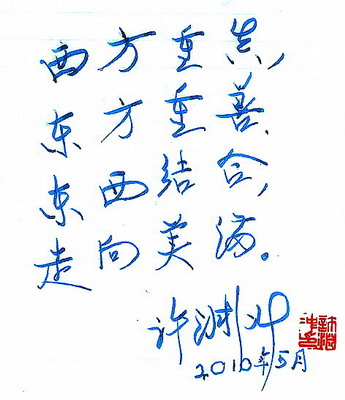 西方重真，
东方重善，
东西结合，
走向美满。
许渊冲
2010年5月